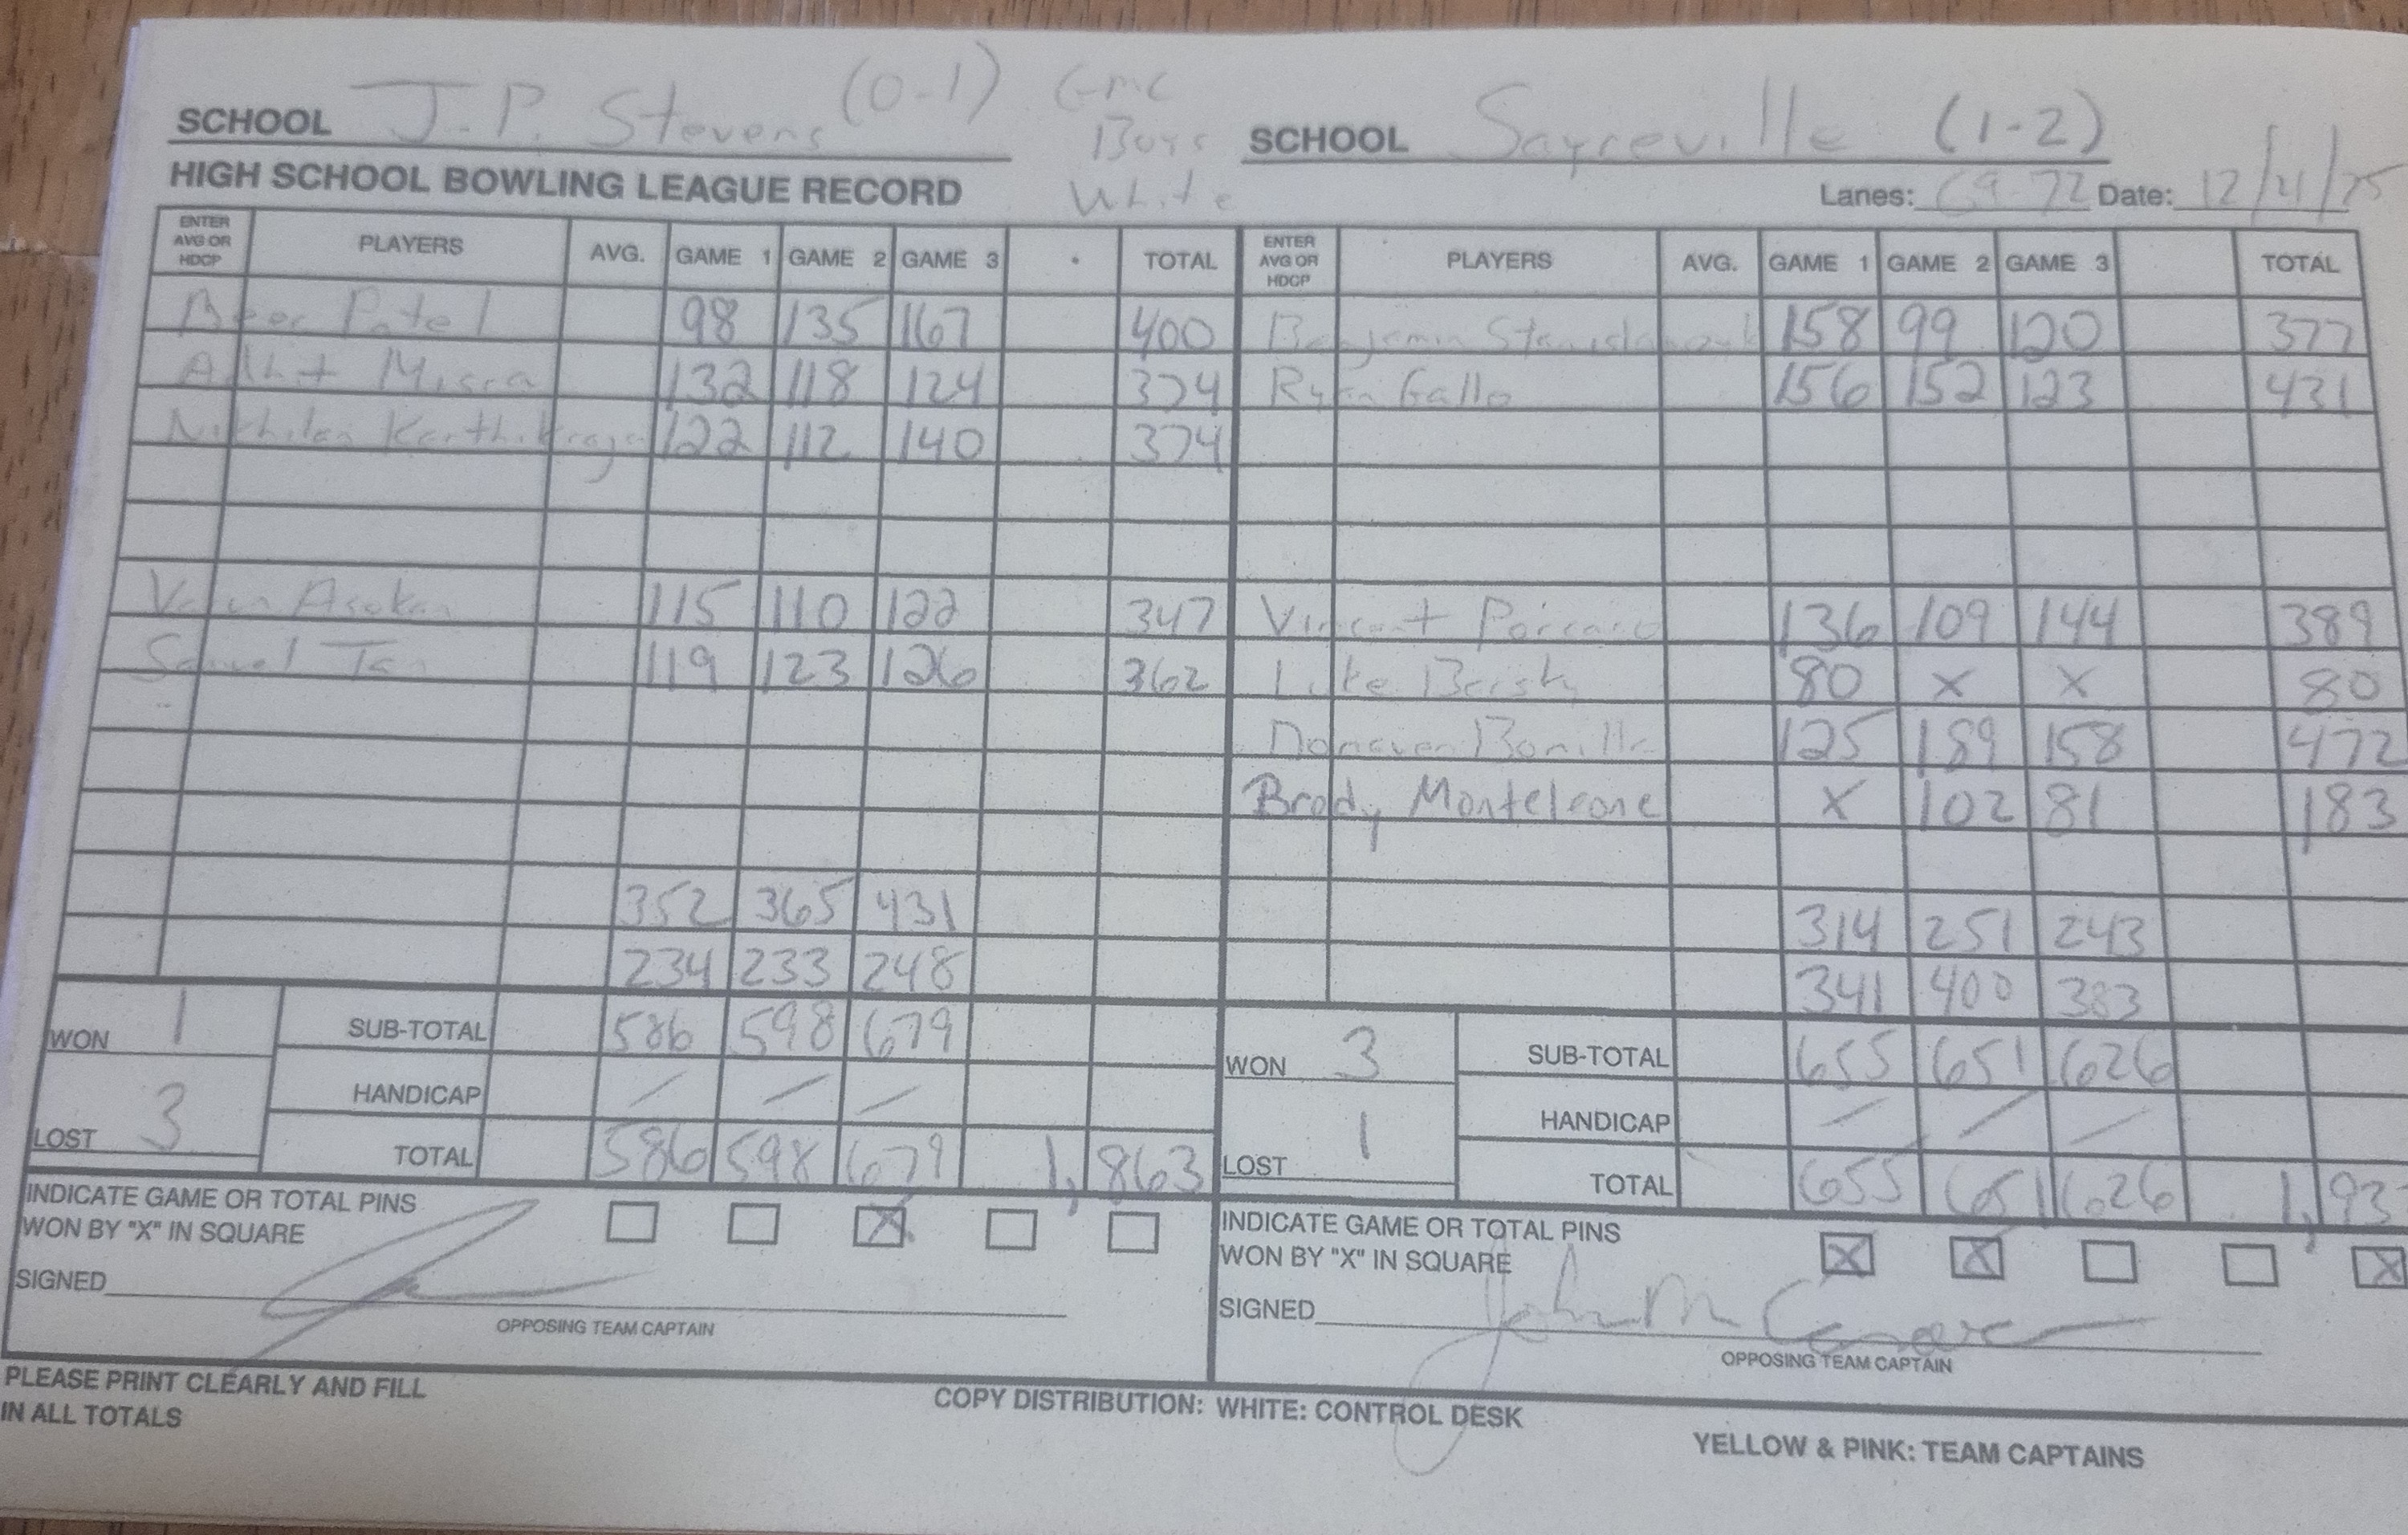 SCHOOL J.P. Stevens (0-1) GMC Boys White SCHOOL Sayreville (1-2)
HIGH SCHOOL BOWLING LEAGUE RECORD Lanes: 69-72 Date: 12/ /25
ENTER AVG OR HDCP PLAYERS AVG. GAME 1 GAME 2 GAME 3 TOTAL ENTER AVG OR HDCP PLAYERS AVG. GAME 1 GAME 2 GAME 3 TOTAL
Patel 98 135 167 400 Benjamin 158 99 120 377
Misra 132 118 124 374 Ryan Gallo 156 152 123 431
122 112 140 374
Asokan 115 110 122 347 Vincent 136 109 144 389
Samuel Tan 119 123 126 362 Luke 80 X X 80
Donovan Bonilla 125 189 158 472
Brody Monteleone X 102 81 183
352 365 431 314 251 243
234 233 248 341 400 383
WON 1 SUB-TOTAL 586 598 679 WON 3 SUB-TOTAL 655 651 626
HANDICAP / / / HANDICAP / / /
LOST 3 TOTAL 586 598 679 1,863 LOST 1 TOTAL 655 651 626 1,93
INDICATE GAME OR TOTAL PINS INDICATE GAME OR TOTAL PINS
WON BY "X" IN SQUARE X WON BY "X" IN SQUARE X X X
SIGNED SIGNED John
OPPOSING TEAM CAPTAIN OPPOSING TEAM CAPTAIN
PLEASE PRINT CLEARLY AND FILL
IN ALL TOTALS
COPY DISTRIBUTION: WHITE: CONTROL DESK
YELLOW & PINK: TEAM CAPTAINS